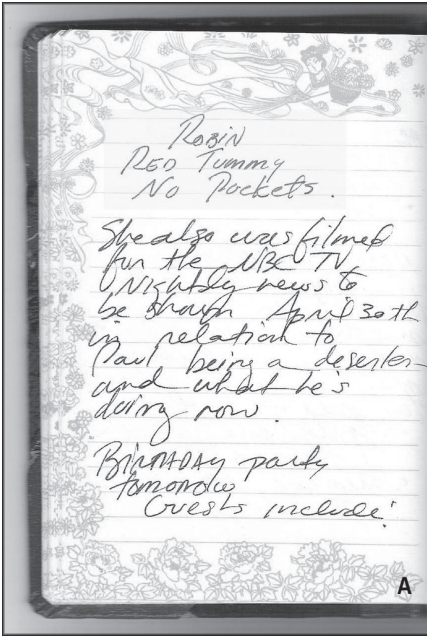 Robin
Red Tummy
No Pockets.
She also was filmed
for the NBC TV
Nightly news to
be shown April 30th
in relation to
Paul being a deserter
and what he's
doing now.
Birthday party
tomorrow
Guests include:
A